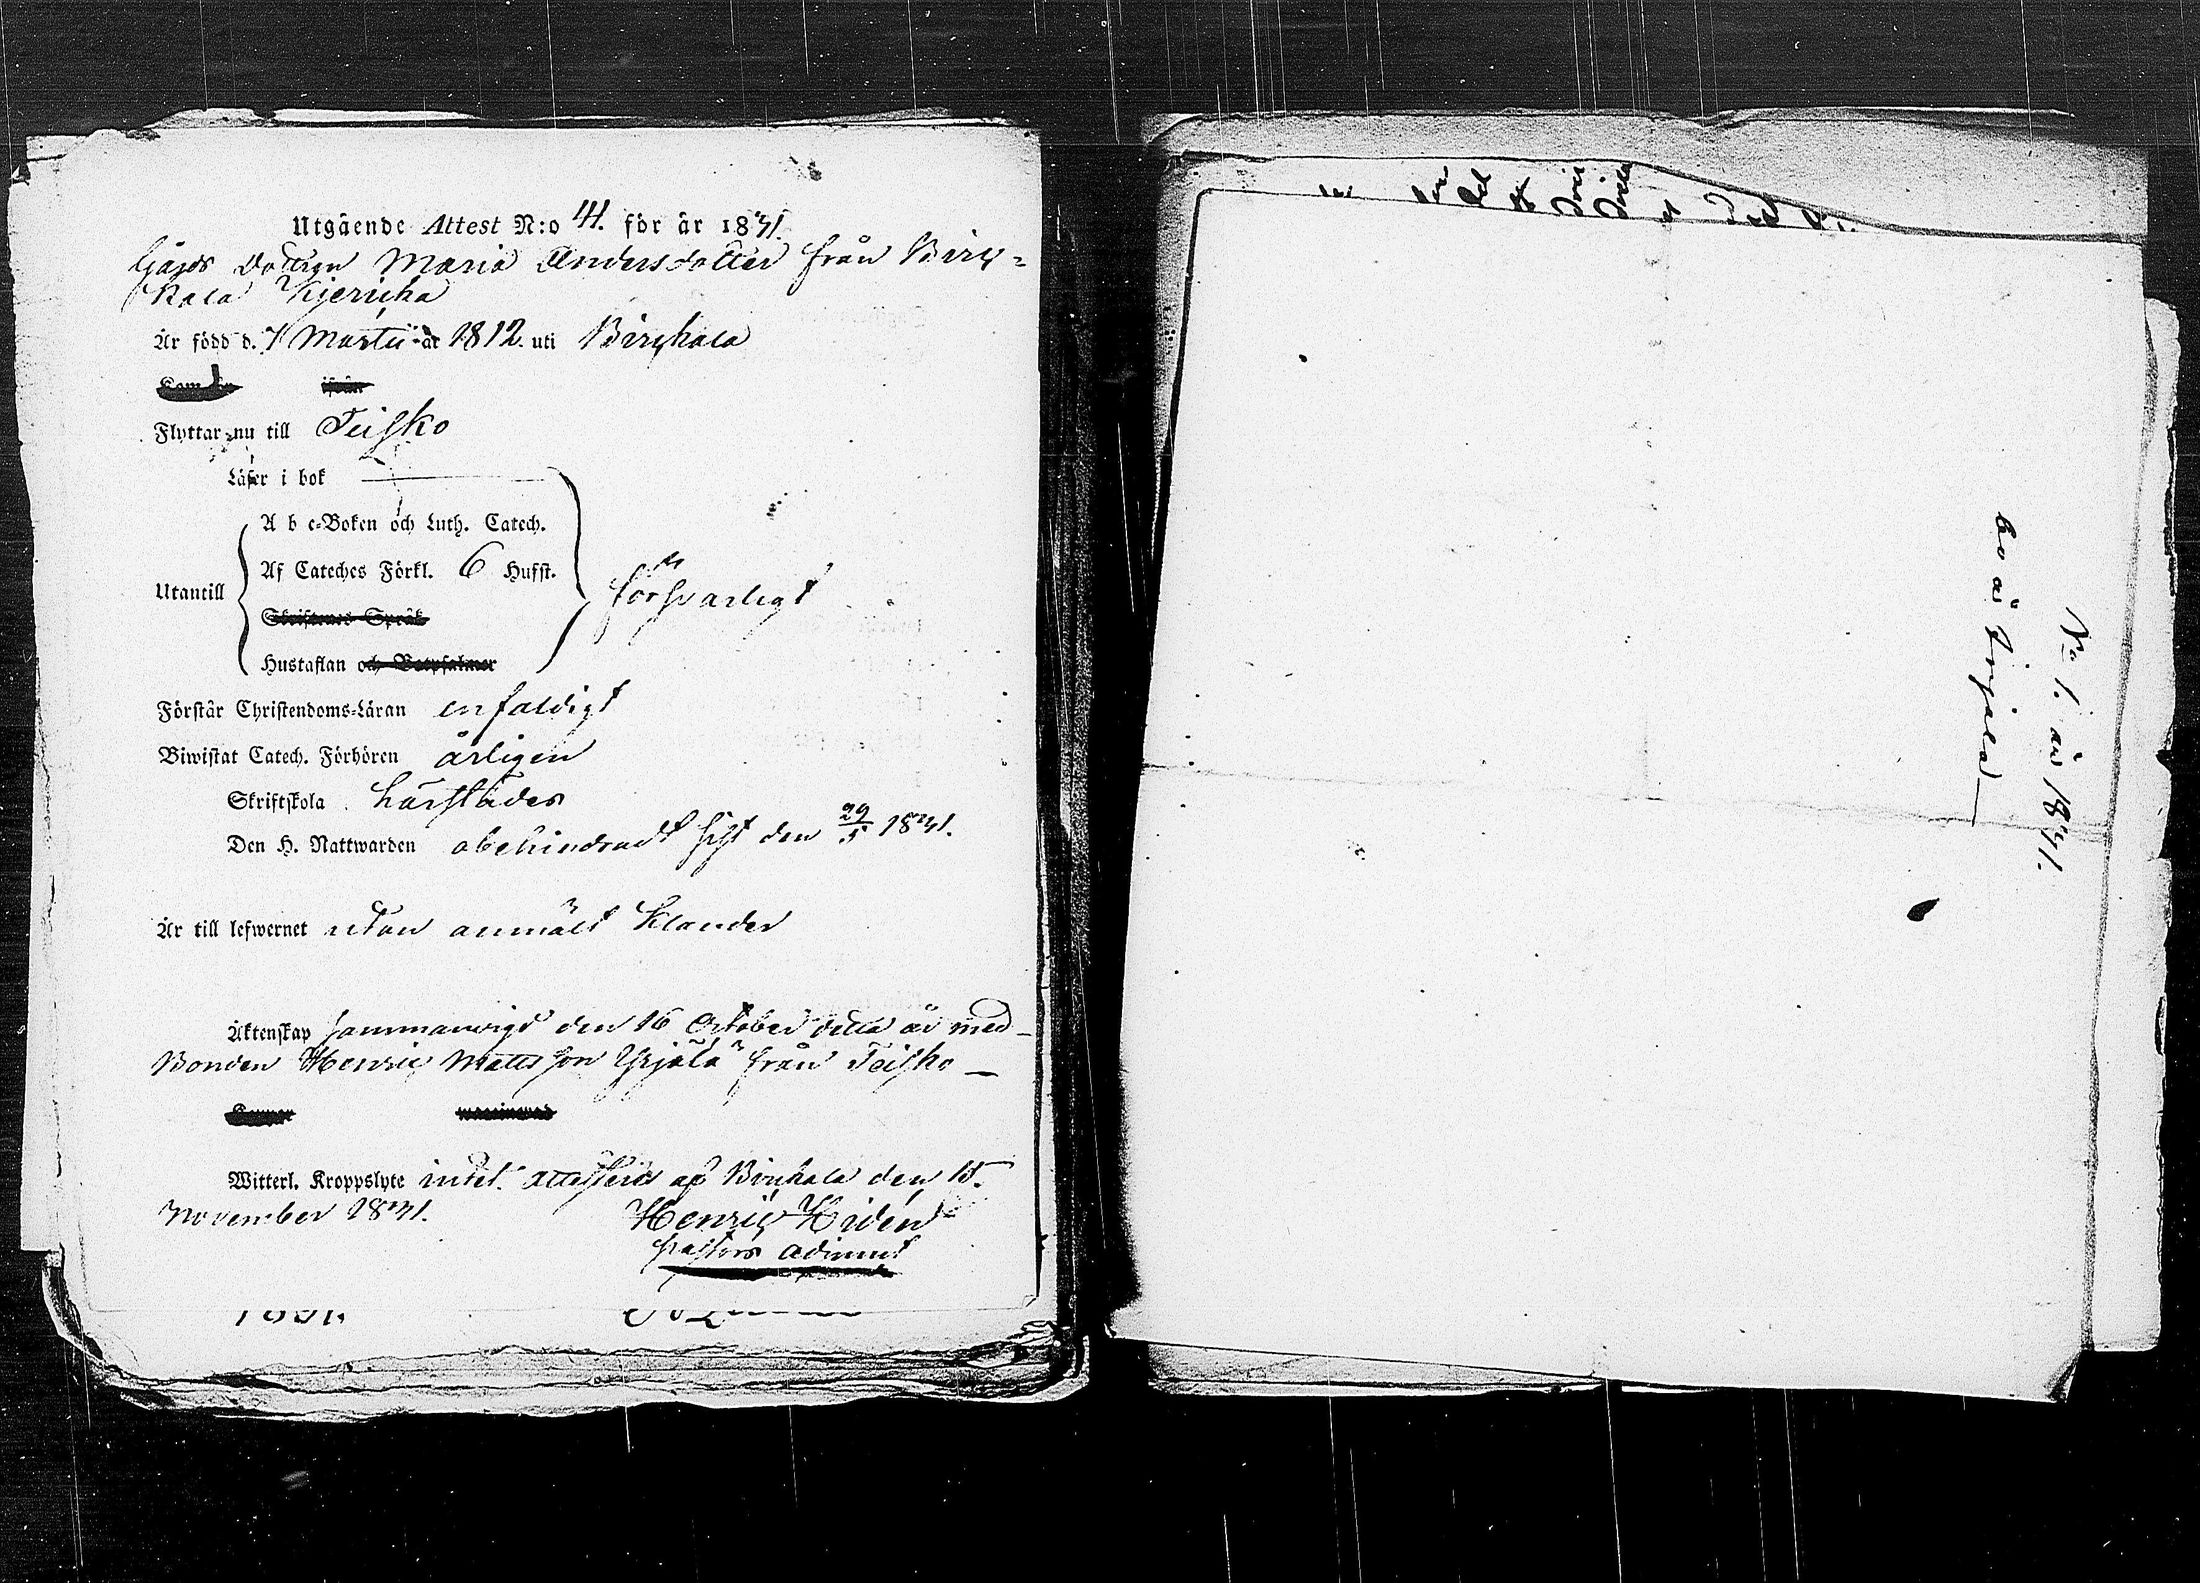 Utgående Attest N:o 41. för år 1831.
Gåhs Dottren Maria Andersdotter från Birc=
kala Kjericka
Är född d. 7 Martii år 1812. uti Birckala
Kom
ifrån
Flyttar nu till Teisko
Läser i bok
A b c-Boken och Luth. Catech.
Af Cateches Förkl. 6 Hufst.
Utantill
försvarligt
Skriftenes Språk
Hustaflan och Botpsalmer
Förstår Christendoms-Läran enfaldigt
Biwistat Catech. Förhören årligen
Skriftskola härstädes
Den H. Nattwarden obehindradt sist den 29/5 1831.
Är till lefwernet utan anmält klander
Äktenskap sammanvigd den 16 October detta år med
Bonden Henric Mattsson från Teisko
Koppor
vaccinerad
Witterl. Kroppslyte intet. Attesterar af Birckala den 15.
November 1831.
Henric Hidén
Pastors Adjunct
1831.
No 1. år 1831.